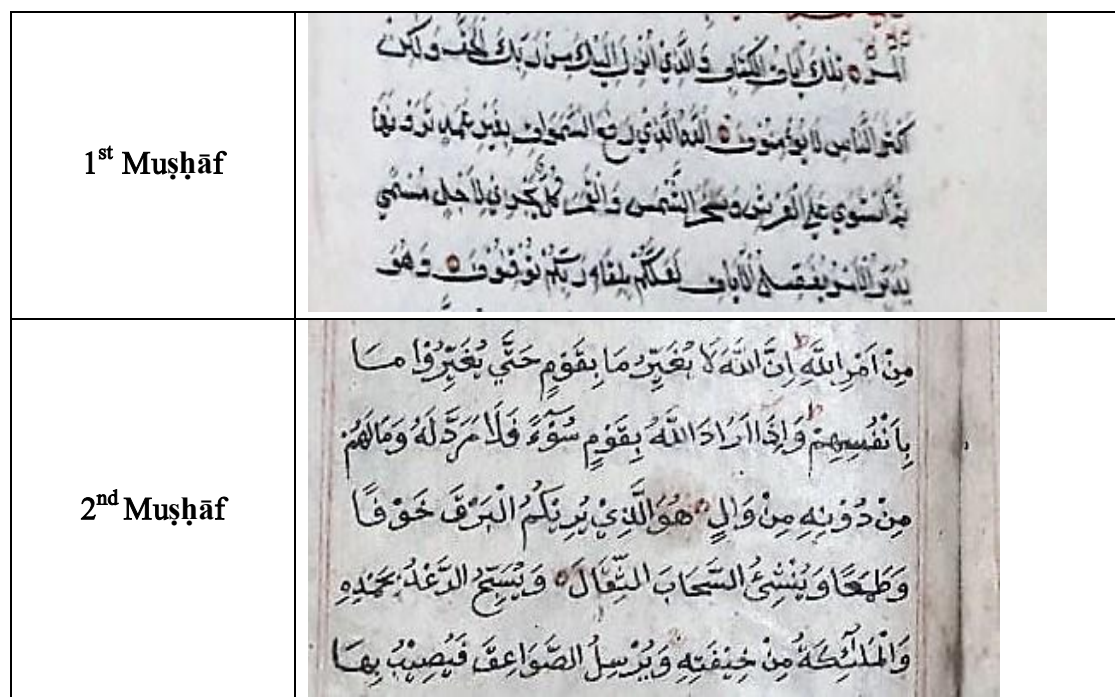 1st Muṣḥāf
المر تِلْكَ آيَاتُ الْكِتَابِ وَالَّذِي أُنْزِلَ إِلَيْكَ مِنْ رَبِّكَ الْحَقُّ وَلَكِنَّ
أَكْثَرَ النَّاسِ لَا يُؤْمِنُونَ اللَّهُ الَّذِي رَفَعَ السَّمَوَاتِ بِغَيْرِ عَمَدٍ تَرَوْنَهَا
ثُمَّ اسْتَوَى عَلَى الْعَرْشِ وَسَخَّرَ الشَّمْسَ وَالْقَمَرَ كُلٌّ يَجْرِي لِأَجَلٍ مُسَمًّى
يُدَبِّرُ الْأَمْرَ يُفَصِّلُ الْآيَاتِ لَعَلَّكُمْ بِلِقَاءِ رَبِّكُمْ تُوقِنُونَ وَهُوَ
2nd Muṣḥāf
مِنْ اَمْرِ اللَّهِ ط اِنَّ اللَّهَ لَا يُغَيِّرُ مَا بِقَوْمٍ حَتَّي يُغَيِّرُوْا مَا
بِاَنْفُسِهِمْ ط وَاِذَا اَرَادَ اللَّهُ بِقَوْمٍ سُوْٓءً فَلَا مَرَدَّ لَهُ وَمَا لَهُمْ
مِنْ دُوْنِهِ مِنْ وَالٍ هُوَ الَّذِيْ يُرِيْكُمُ الْبَرْقَ خَوْفًا
وَطَمَعًا وَيُنْشِئُ السَّحَابَ الثِّقَالَ وَيُسَبِّحُ الرَّعْدُ بِحَمْدِهِ
وَالْمَلٰٓئِكَةُ مِنْ خِيْفَتِهِ وَيُرْسِلُ الصَّوَاعِقَ فَيُصِيْبُ بِهَا